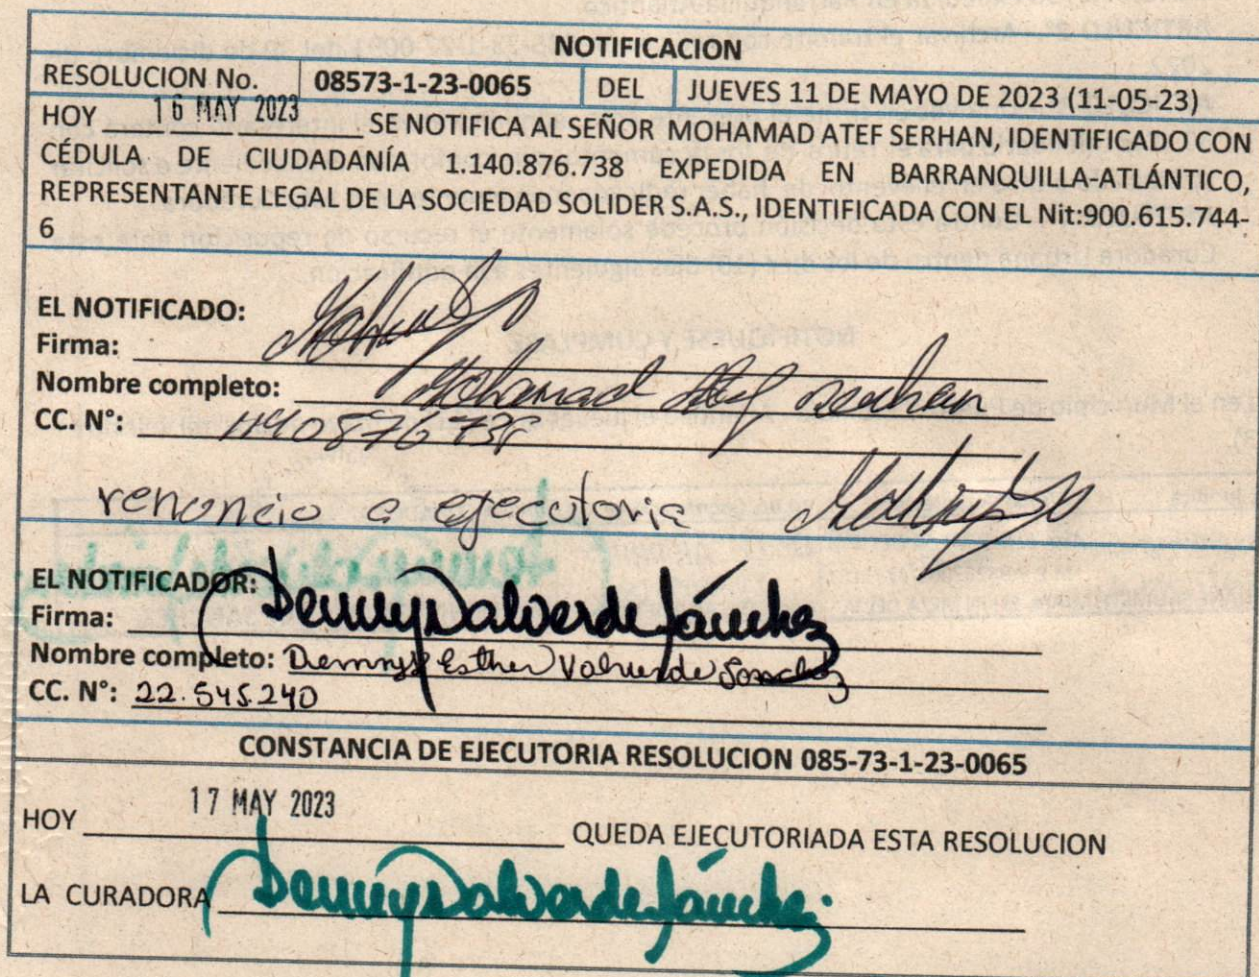 NOTIFICACION
RESOLUCION No. 08573-1-23-0065 DEL JUEVES 11 DE MAYO DE 2023 (11-05-23)
HOY 16 MAY 2023 SE NOTIFICA AL SEÑOR MOHAMAD ATEF SERHAN, IDENTIFICADO CON
CÉDULA DE CIUDADANÍA 1.140.876.738 EXPEDIDA EN BARRANQUILLA-ATLÁNTICO,
REPRESENTANTE LEGAL DE LA SOCIEDAD SOLIDER S.A.S., IDENTIFICADA CON EL Nit:900.615.744-
6
EL NOTIFICADO:
Firma:
Nombre completo: Mohamad Atef Serhan
CC. N°: 1140876738
renuncio a ejecutoria
EL NOTIFICADOR:
Firma: Dennys Valverde Sánchez
Nombre completo: Dennys Esther Valverde Sanchez
CC. N°: 22.545.240
CONSTANCIA DE EJECUTORIA RESOLUCION 085-73-1-23-0065
HOY 17 MAY 2023 QUEDA EJECUTORIADA ESTA RESOLUCION
LA CURADORA Dennys Valverde Sánchez